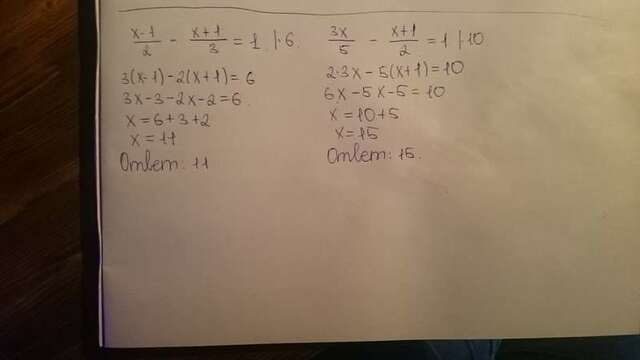 x-1/2 - x+1/3 = 1 | ·6.
3(x-1)-2(x+1)=6
3x-3-2x-2=6.
x=6+3+2
x=11
Ответ: 11
3x/5 - x+1/2 = 1 | ·10
2·3x-5(x+1)=10
6x-5x-5=10
x=10+5
x=15
Ответ: 15.